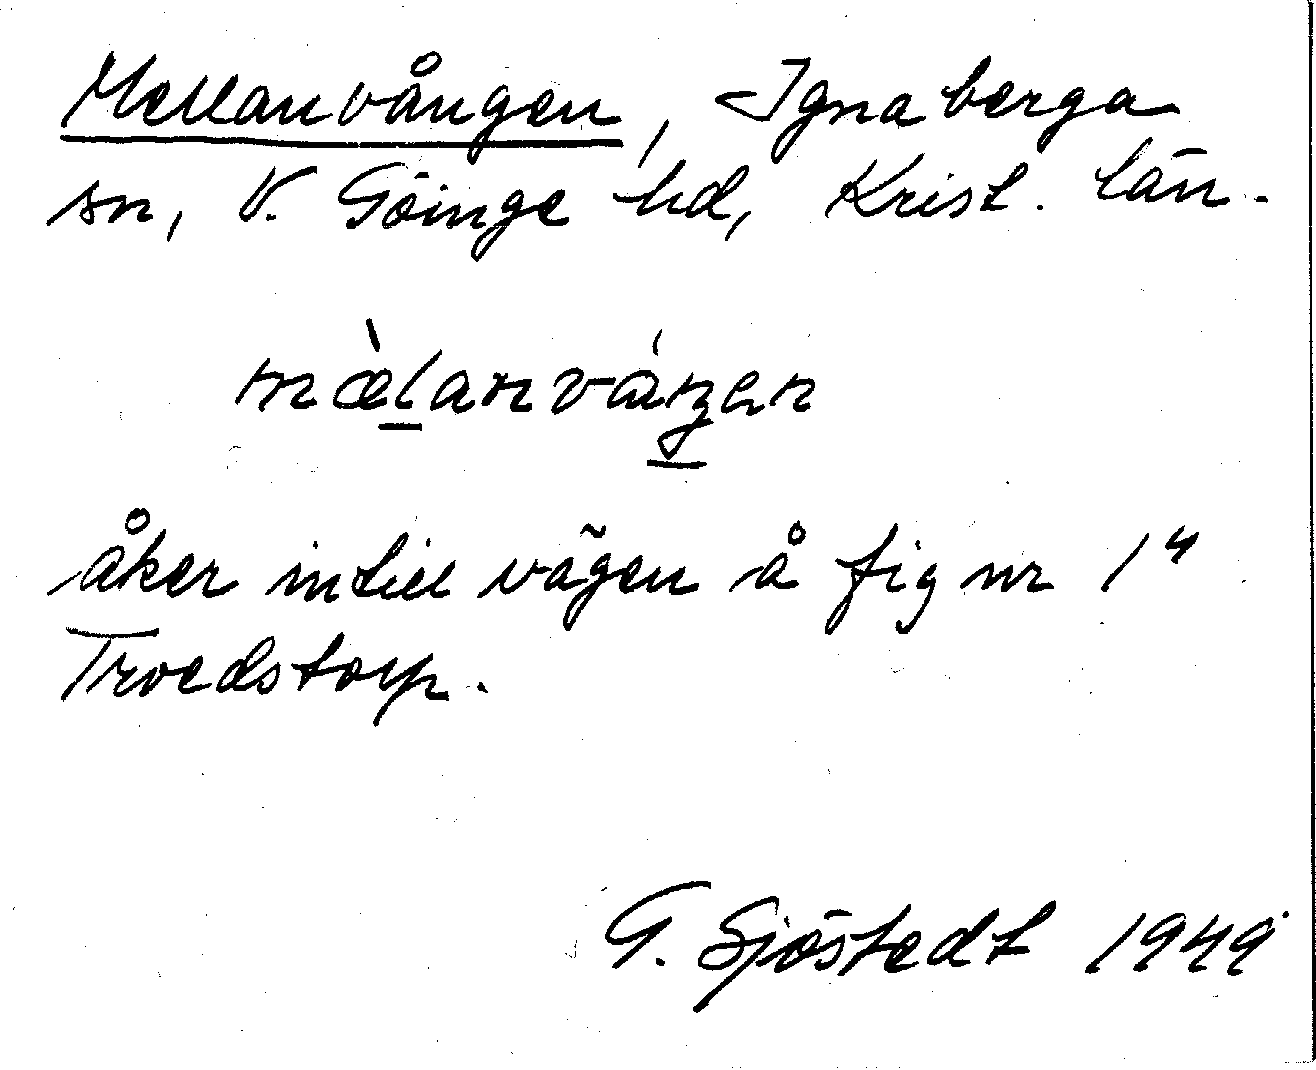 Mellanvången, Ignaberga
sn, V. Göinge hd, Krist. län.
mæ̀l̲anváŋ̲en
åker intill vägen å fig nr 1⁴
Troedstorp.
G. Sjöstedt 1949